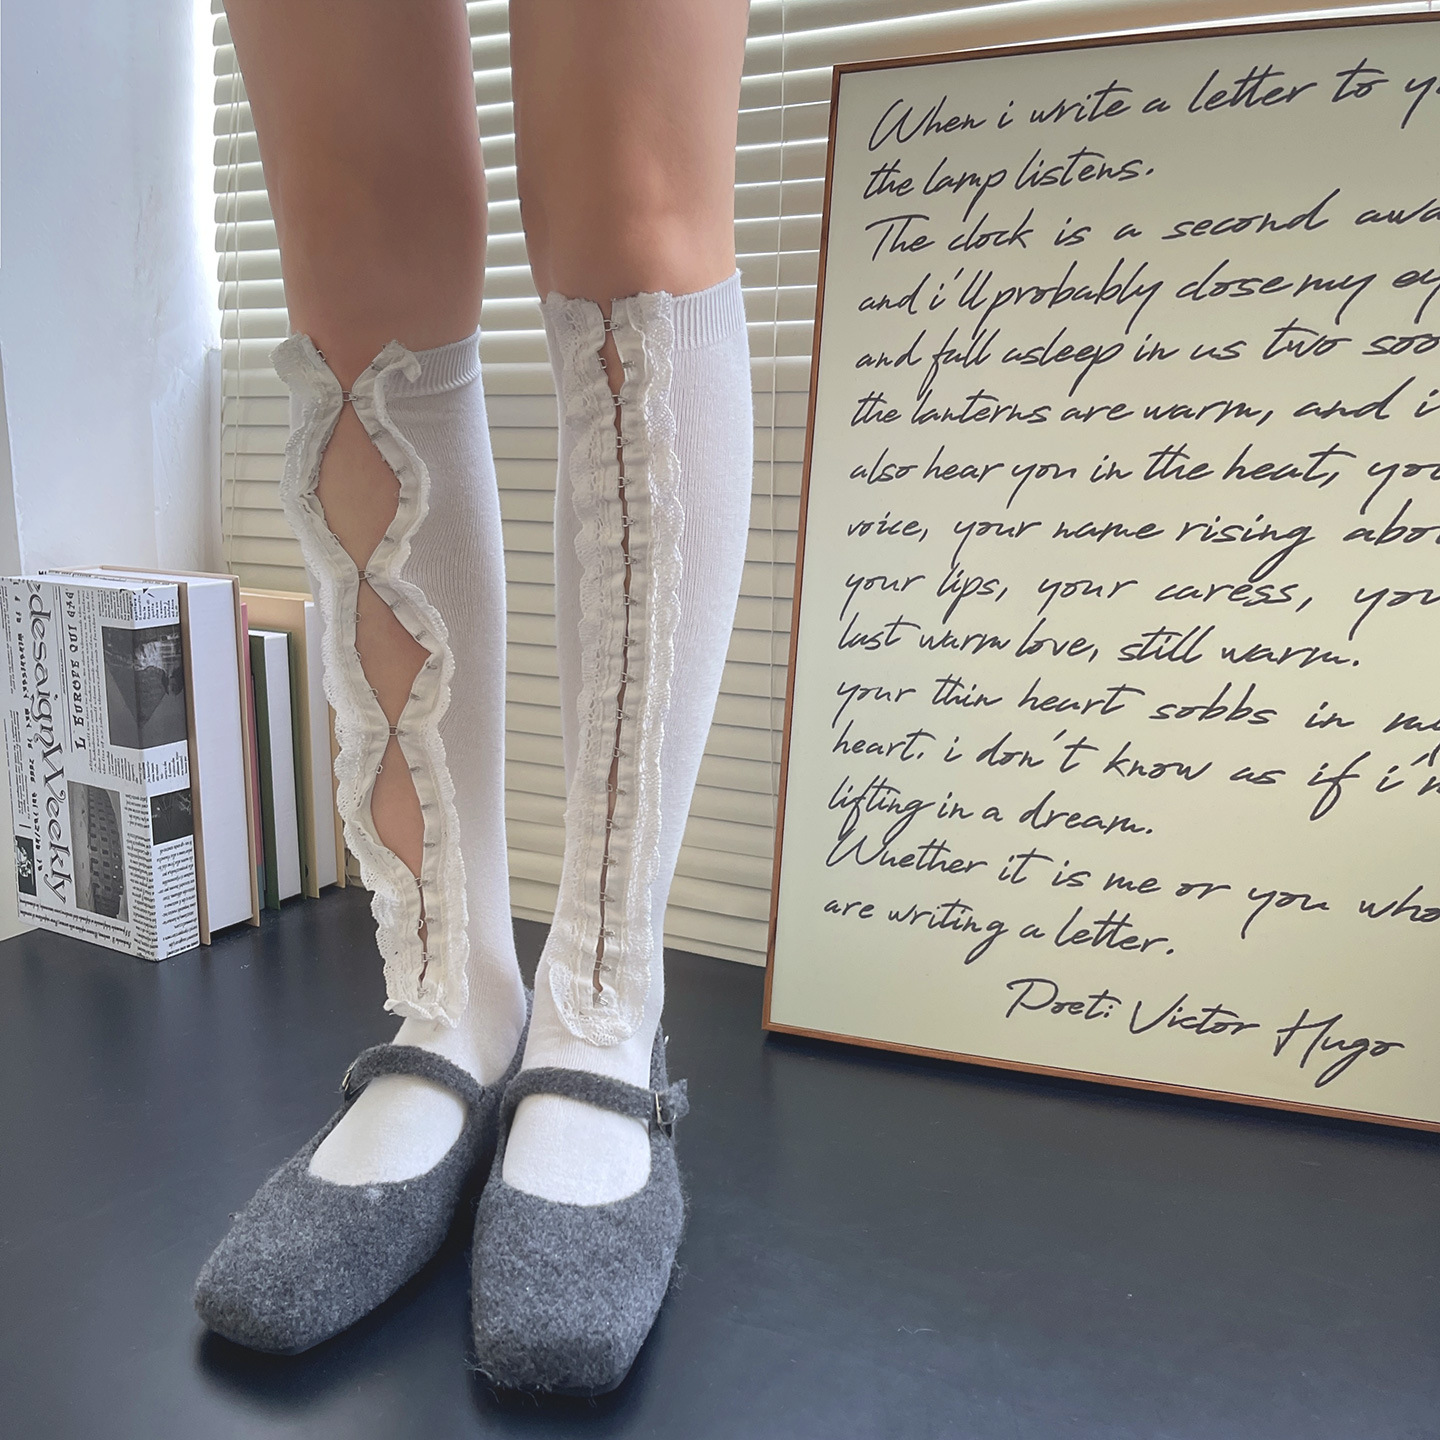 When i write a letter to
the lamp listens.
The clock is a second
and i'll probably close my
and fall asleep in us two
the lanterns are warm, and i
also hear you in the heat,
voice, your name rising
your lips, your caress,
last warm love, still warm.
your thin heart sobbs in
heart. i don't know as if
lifting in a dream.
Wuether it is me or you who
are writing a letter.
Poet: Victor Hugo
designWeekly
L EUROPE QUI